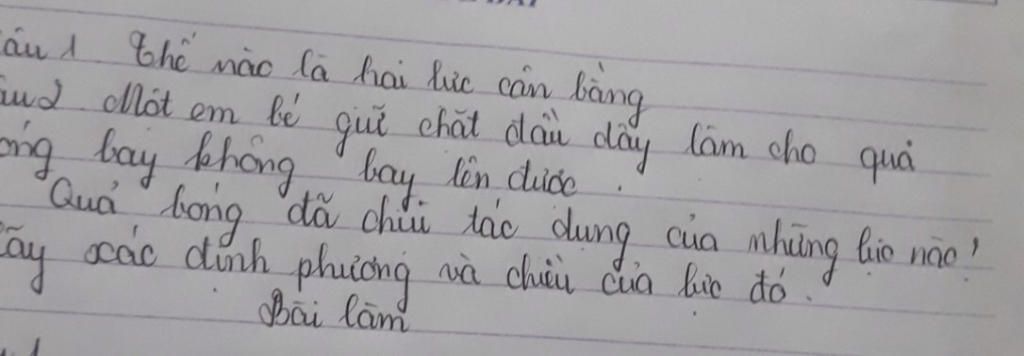 âu 1 Thế nào là hai lực cân bằng
âu 2 Một em bé giữ chặt đầu dây làm cho quả
óng bay không bay lên được.
Quả bóng đã chịu tác dụng của những lực nào?
ãy xác định phương và chiều của lực đó.
Bài làm